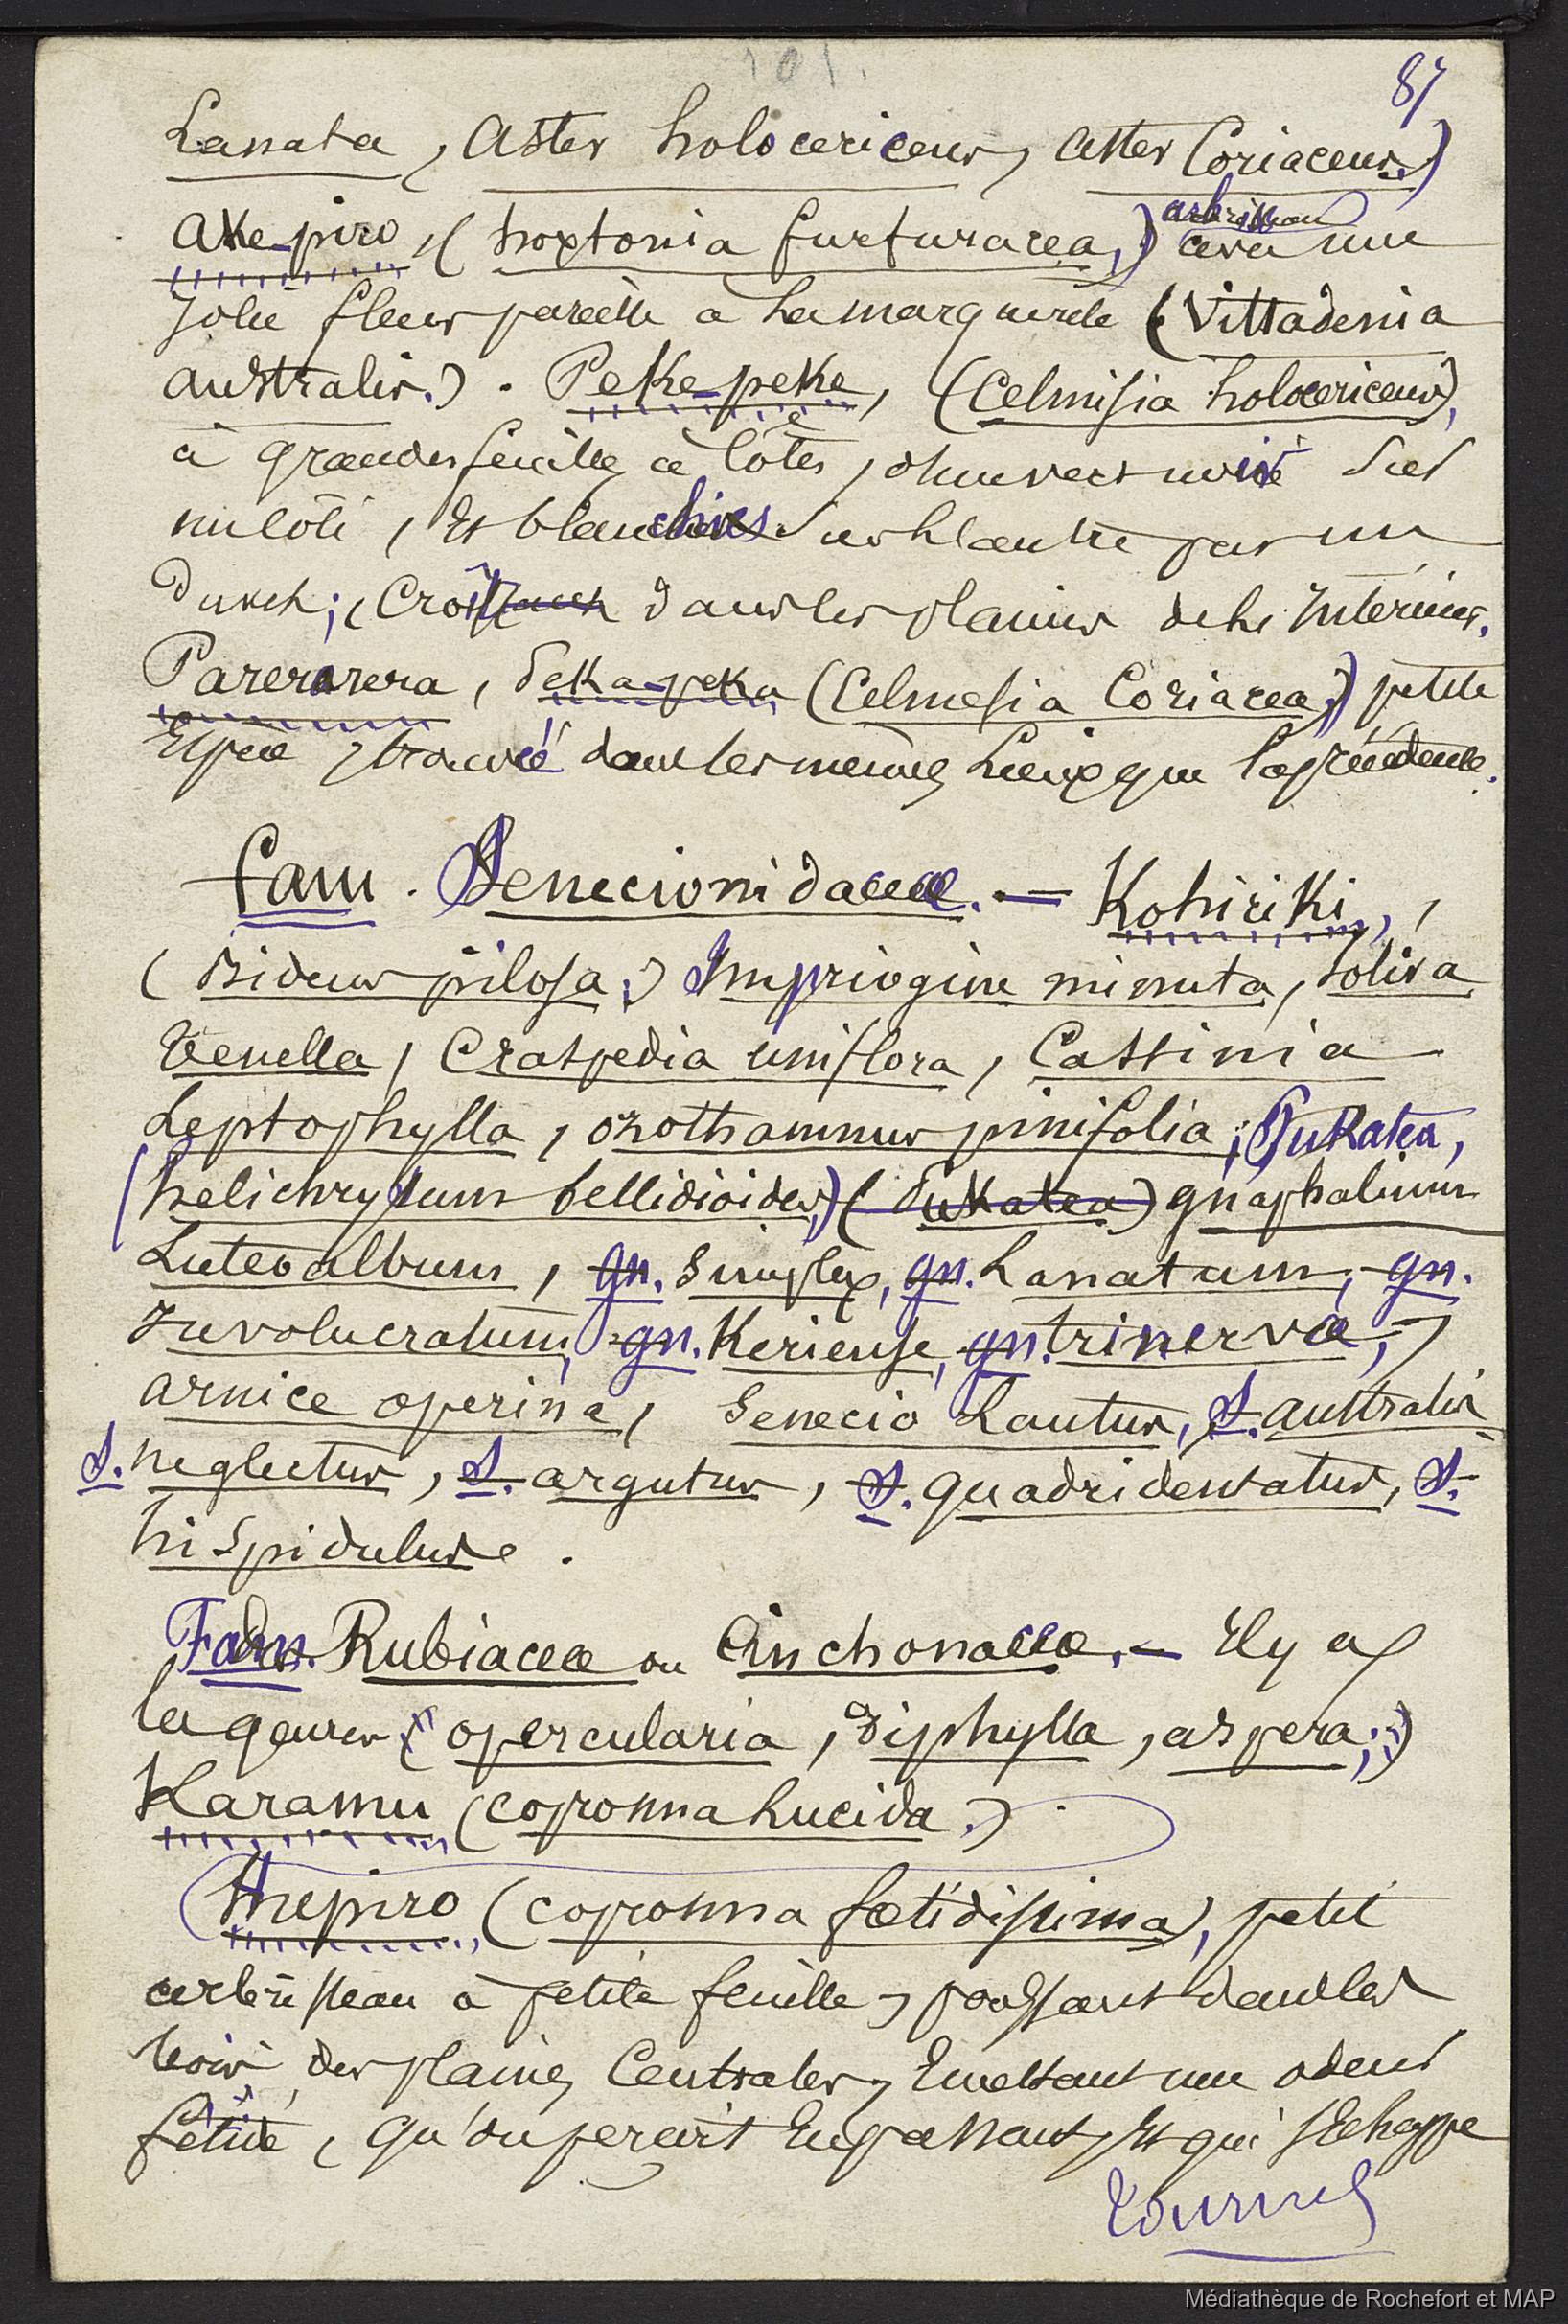 101.
87
Lanata, Aster holocericeus, Aster Coriaceus.)
Ake-piro, (hoxtonia furfuracea,) arbrisseau avec une
Jolie fleur pareille a La marguerite (Vittadenia
australis.). Peke-peke, (Celmisia holocericeus),
à grandes feuilles à côtes, d'un vert noir sur
un côté, Et blanches sur L'autre par un
Duvet; Croît dans les plaines de L'intérieur.
Parerarera, Peka-peka (Celmesia Coriacea,) petite
Espèce, trouvée dans les mêmes Lieux que la précédente.
Fam. Senecionidaceæ. — Kohiriki,
(Bidens pilosa;) Impriogine minuta, Soliva
tenella, Craspedia uniflora, Cassinia
Leptophylla, ozothamnus pinifolia; Pukatea,
(helichrysum bellidioides,) (Pukatea) gnaphalium
Luteoalbum, gn. Simplex, gn. Lanatum, gn.
Involucratum, gn. Keriense, gn. trinerva,
arnice operina, Senecio Lautus, S. australis
S. neglectus, S. argutus, S. quadridentatus, S.
hispidulus.
Fam. Rubiaceæ ou Cinchonaceæ. — Il y a
les genres (opercularia, Diphylla, aspera;)
Karamu (coprosma Lucida.)
Hupiro (coprosma fœtidissima), petit
arbrisseau à petite feuille, poussant dans les
bois des plaines Centrales, Emettant une odeur
fétide, qu'on perçoit En passant, Et qui s'Echappe
tournez
Médiathèque de Rochefort et MAP